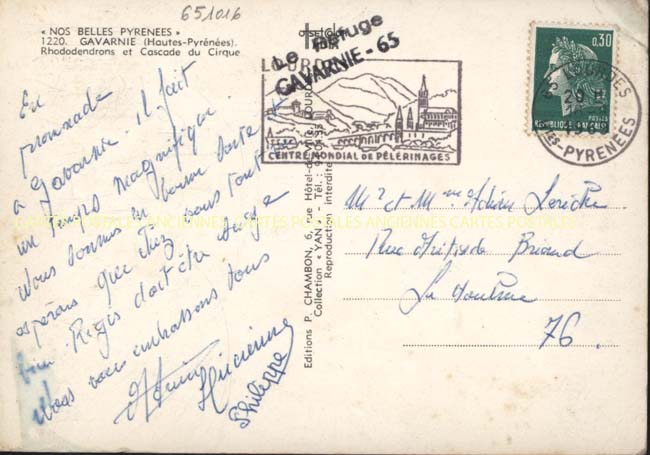 651016
« NOS BELLES PYRENEES »
1220. GAVARNIE (Hautes-Pyrénées).
Rhododendrons et Cascade du Cirque
Le Refuge
GAVARNIE - 65
LOURDES
CENTRE MONDIAL DE PÈLERINAGES
0,30
POSTES
REPUBLIQUE FRANÇAISE
LOURDES
Htes-PYRENEES
En
promenade
à Gavarnie. Il fait
un temps magnifique.
Nous sommes en bonne santé et
espérons que chez vous tout va
bien. Régis doit être
Nous vous embrassons tous
Lucienne
Philippe
Editions P. CHAMBON, 6, rue Hôtel-de-Ville, LOURDES
Collection « YAN » - Tél. :
Reproduction interdite
Mr et Mme Adrien
Rue Aristide Briand
76.
CARTES POSTALES ANCIENNES CARTES POSTALES ANCIENNES CARTES POSTALES